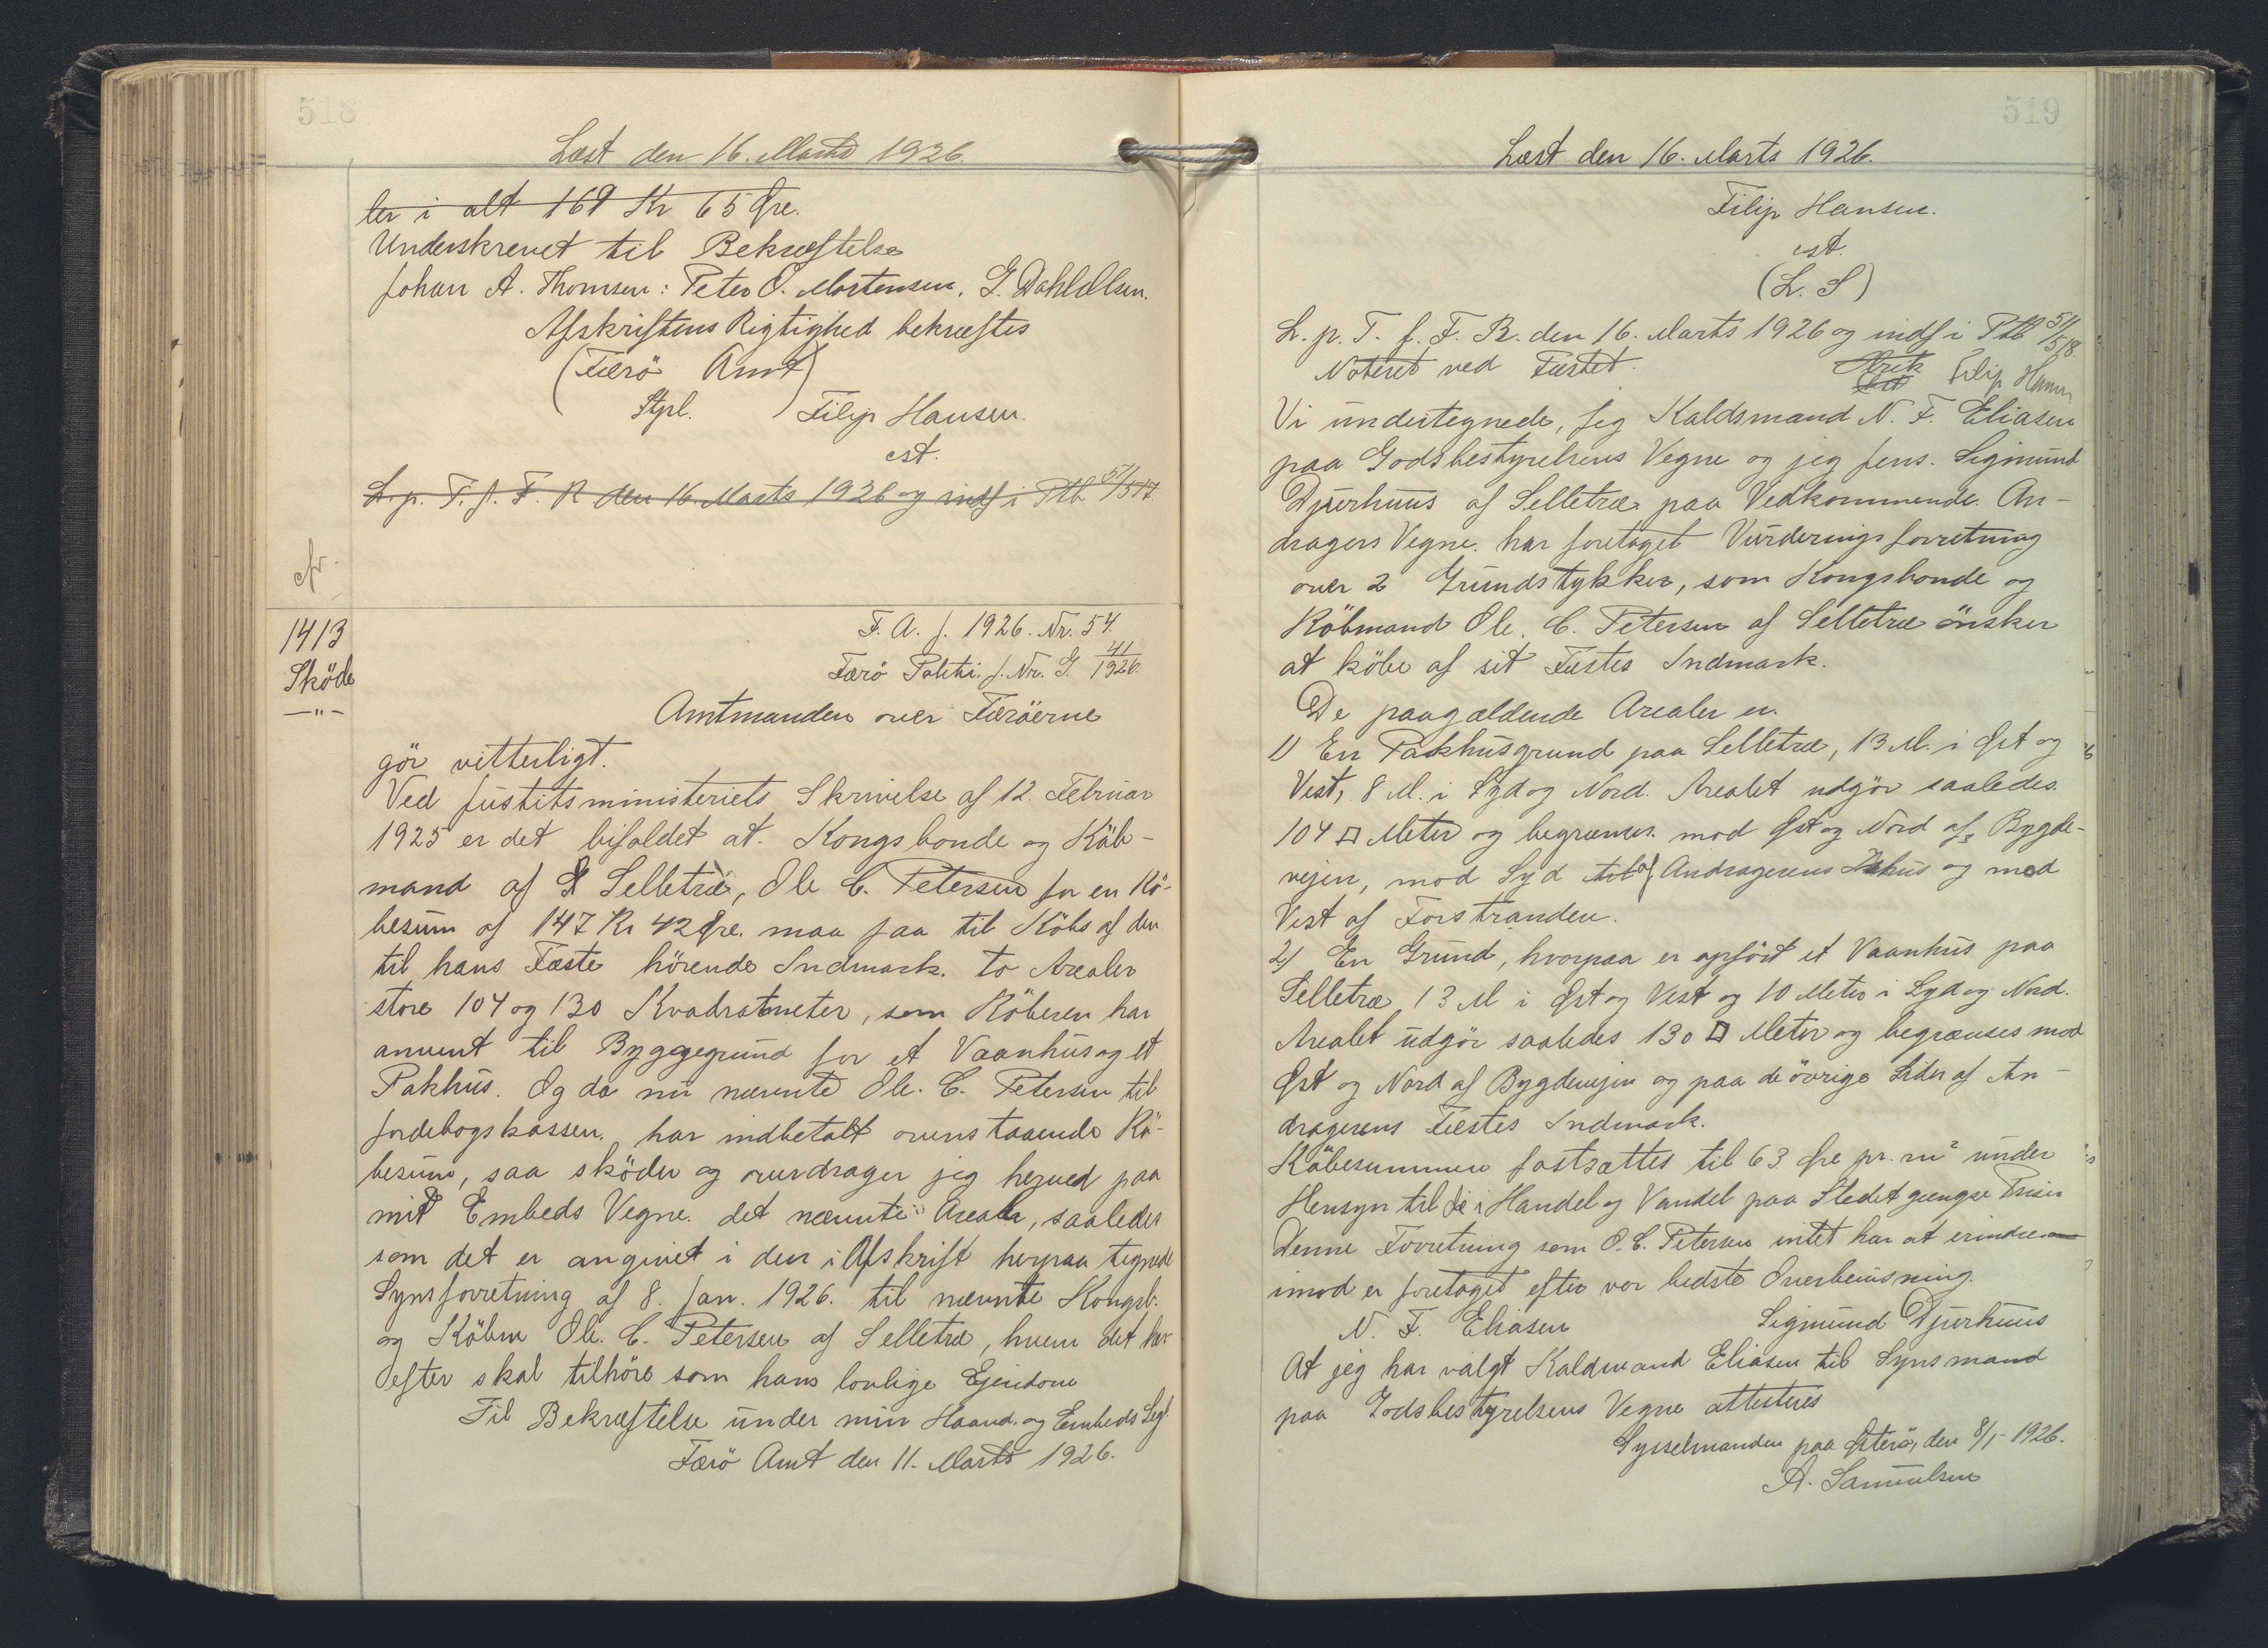 518
Læst den 16. Marts 1926.
ler i alt 169 Kr 65 Øre.
Underskrevet til Bekræftelse
Johan A. Thomsen: Peter O. Mortensen. G. Dahl Olsen.
Afskriftens Rigtighed bekræftes
(Færö Amt)
Stpl. Filip Hansen.
cst.
L. p. T. f. F. R den 16. Marts 1926 og indf i Ptb 51/517.
1413
Sköde
—"—
F. A. J. 1926. Nr. 54.
Færö Politi. J. Nr. G. 41/1926.
Amtmanden over Færöerne
gör vitterligt.
Ved Justitsministeriets Skrivelse af 12. Februar
1925 er det bifaldet at Kongsbonde og Köb-
mand af Selletræ, Ole C. Petersen for en Kö-
besum af 147 Kr 42 Øre. maa faa til Köbs af den
til hans Fæste hörende Indmark. to Arealer
store 104 og 130 Kvadratmeter, som Köberen har
anvent til Byggegrund for et Vaanhus og et
Pakhus. Og da nu nævnte Ole. C. Petersen til
Jordebogskassen. har indbetalt ovenstaaende Kö-
besum, saa sköder og overdrager jeg herved paa
mit Embeds Vegne. det nævnte Arealer, saaledes
som det er angivet i den i Afskrift herpaa tegnede
Synsforretning af 8. Jan. 1926. til nævnte Kongsb.
og Köbm Ole. C. Petersen af Selletræ, hvem det her
efter skal tilhöre som hans lovlige Ejendom
Til Bekræftelse under min Haand. og Embeds Segl.
Færö Amt den 11. Marts 1926.
519
Læst den 16. Marts 1926.
Filip Hansen.
cst.
(L. S)
L. p. T. f. F. R. den 16. Marts 1926 og indf i Ptb 51/518.
Noteret ved Fæstet. Filip Hansen
Vi undertegnede, Jeg Kaldsmand N. F. Eliasen
paa Godsbestyrelsens Vegne og jeg Jens. Sigmund
Djurhuus af Selletræ paa Vedkommende. An-
dragers Vegne. har foretaget Vurderingsforretning
over 2 Grundstykker, som Kongsbonde og
Köbmand Ole. C. Petersen af Selletræ önsker
at köbe af sit Fæstes Indmark.
De paagældende Arealer er.
1) En Pakhusgrund paa Selletræ, 13 M. i Øst og
Vest, 8 M. i Syd og Nord. Arealet udgör saaledes.
104 □ Meter og begrænses. mod Øst og Nord af Bygde-
vejen, mod Syd til af Andragerens og med
Vest af Forstranden.
2) En Grund, hvorpaa er opfört et Vaanhus paa
Selletræ 13 M i Øst og Vest og 10 Meter i Syd og Nord.
Arealet udgör saaledes 130 □ Meter og begrænses mod
Øst og Nord af Bygdevejen og paa de övrige Sider af An-
dragerens Fæstes Indmark.
Köbesummen fastsættes til 63 Øre pr. m² under
Hensyn til de i Handel og Vandel paa Stedet gængse Priser
Denne Forretning som O. C. Petersen intet har at erindre
imod er foretaget efter vor bedste Overbevisning.
N. F. Eliasen Sigmund Djurhuus
At jeg har valgt Kaldsmand Eliasen til Synsmand
paa Godsbestyrelsens Vegne attesteres
Sysselmanden paa Østerö, den 8/1- 1926.
A. Samuelsen